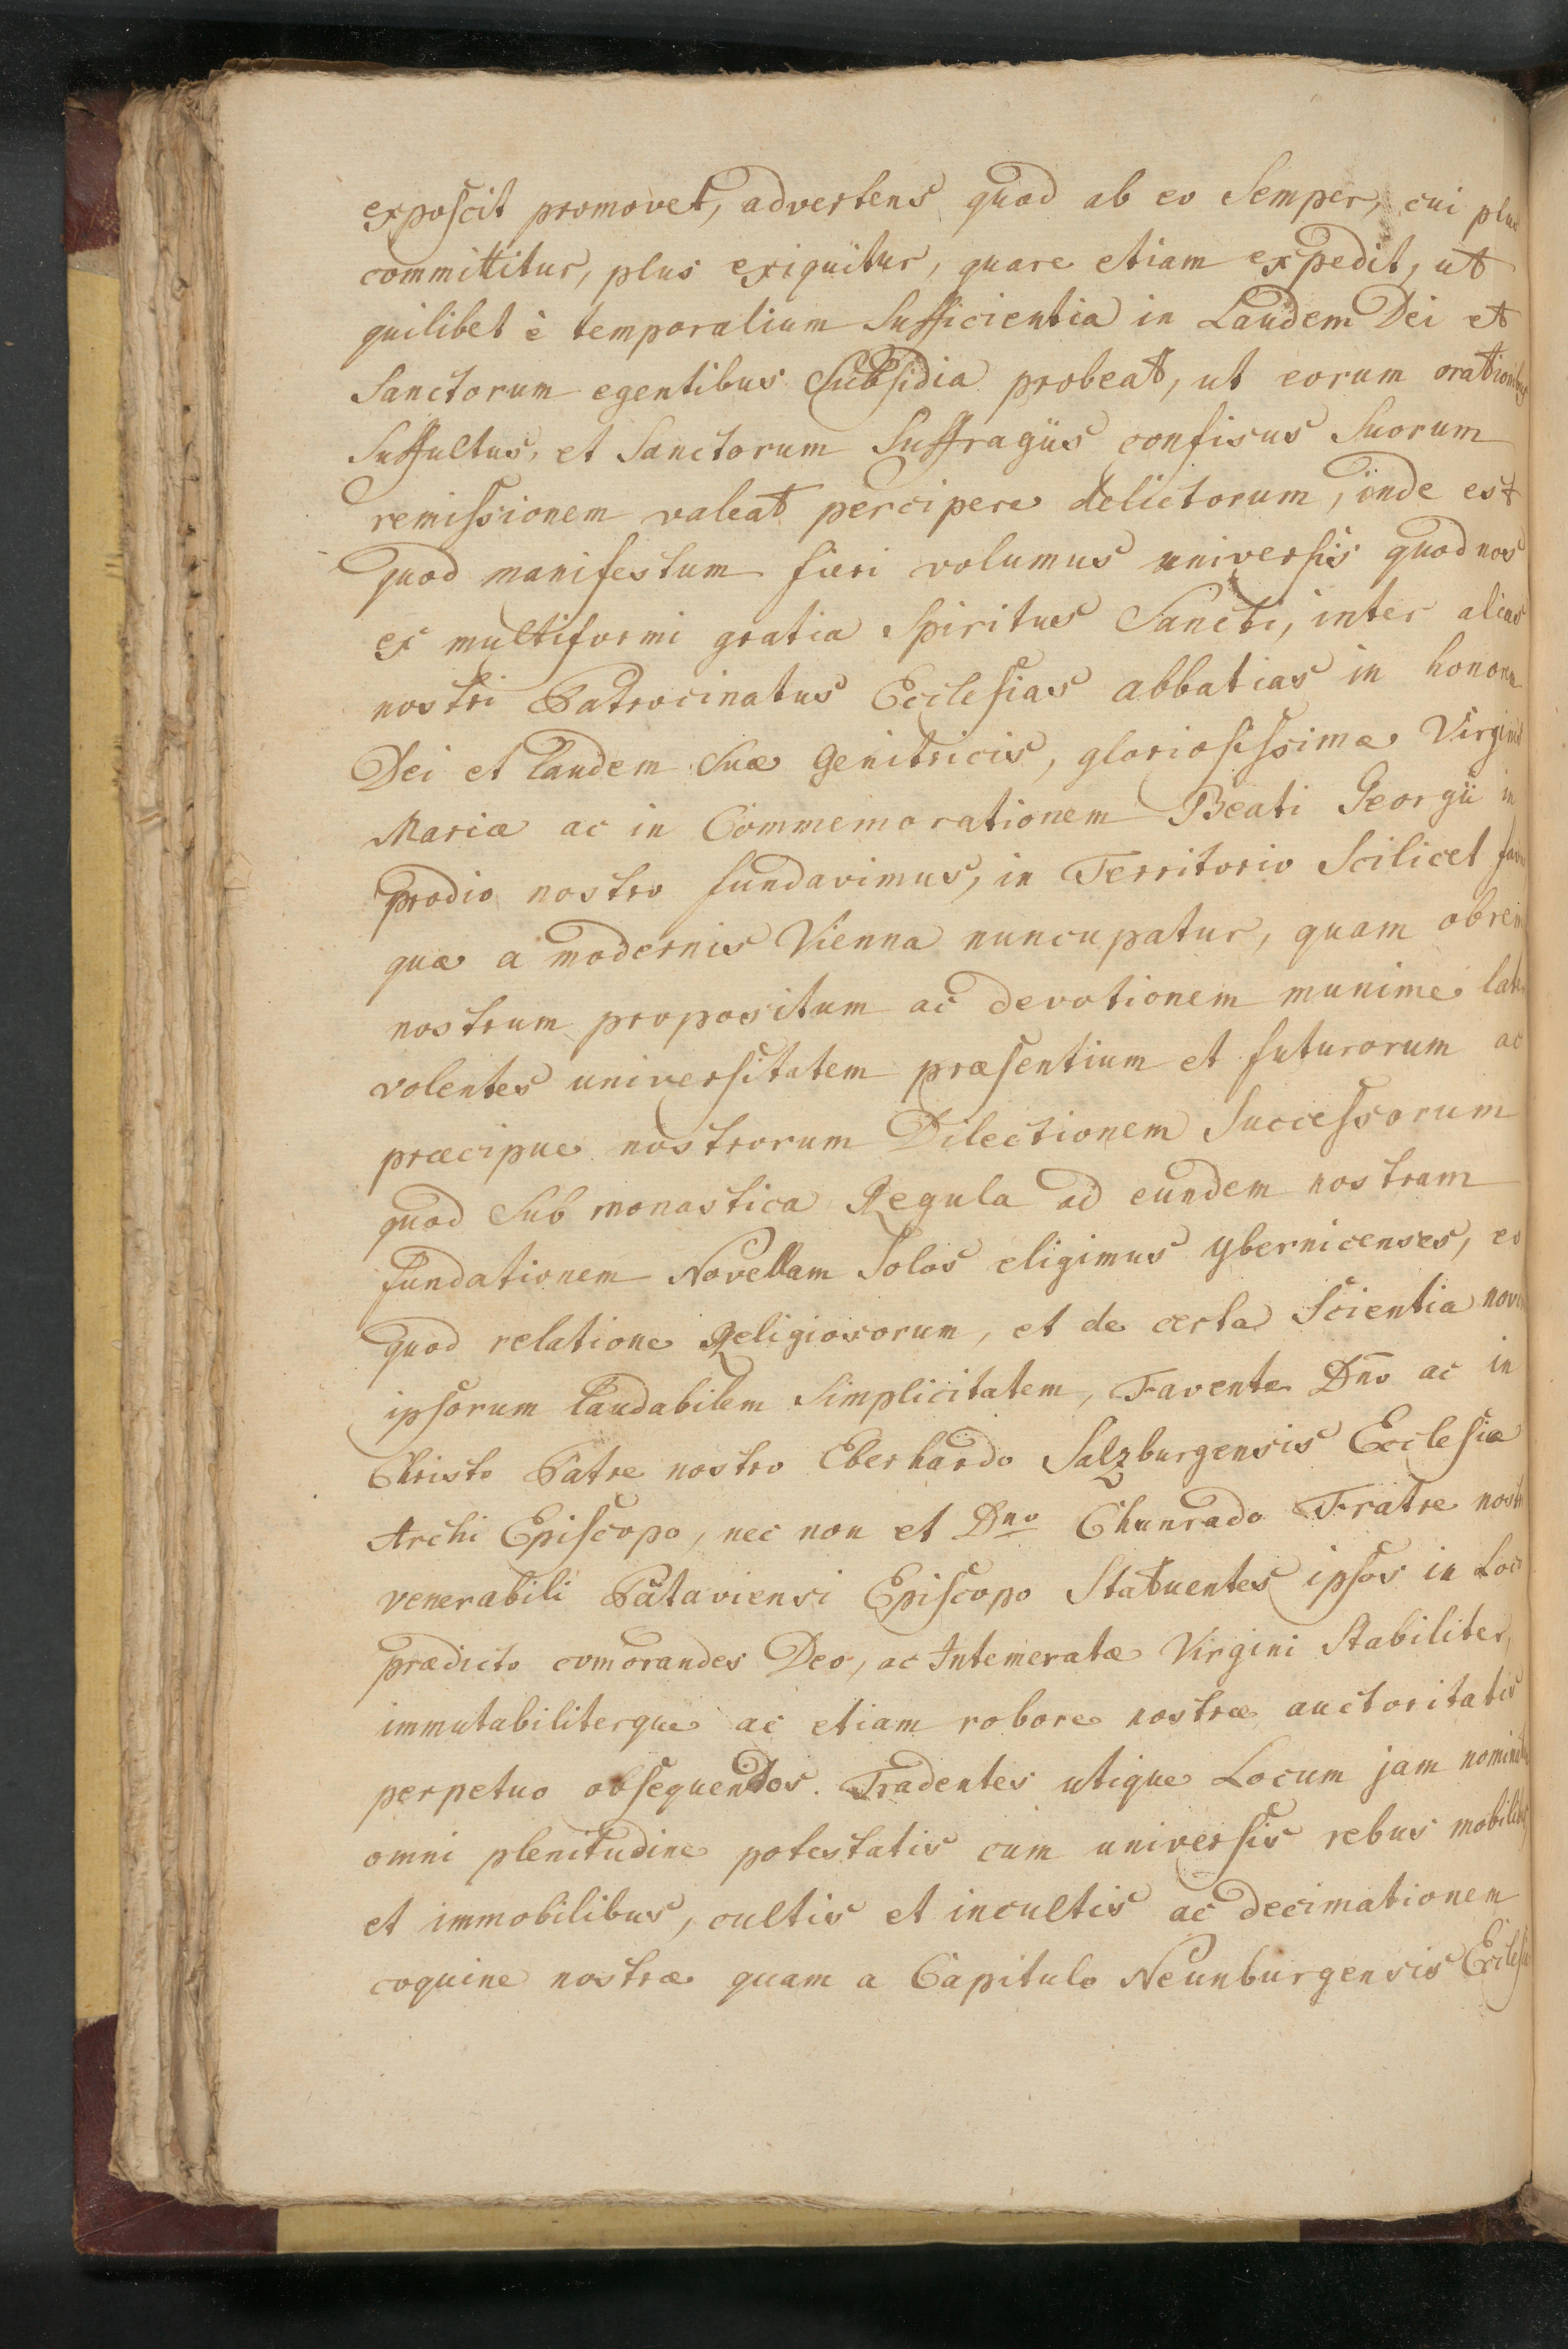 exposcit promovet, advertens quod ab eo Semper, cui plus
committitur, plus exiguitur, quare etiam expedit, ut
quilibet è temporalium Sufficientia in Laudem Dei et
Sanctorum egentibus Subsidia probeat, ut eorum orationibus
Suffultus, et Sanctorum Suffragiis confisus Suorum
remissionem valeat percipere delictorum, inde est
quod manifestum fieri volumus universis quod nos
ex multiformi gratia Spiritus Sancti, inter alias
nostri Patrocinatus Ecclesias abbatias in honorem
Dei et laudem Suæ Genitricis, gloriosissimæ Virginis
Mariæ ac in Commemorationem Beati Georgii in
prædio nostro fundavimus, in Territorio Scilicet
quæ a modernis Vienna nuncupatur, quam obrem
nostrum propositum ac devotionem munime
volentes universitatem præsentium et futurorum ac
præcipue nostrorum Dilectionem Successorum
quod Sub monastica Regula ad eundem nostram
fundationem Novellam Solos eligimus Ybernicenses, eo
quod relatione Religiosorum, et de certa Scientia
ipsorum laudabilem Simplicitatem, Favente Dño ac in
Christo Patre nostro Eberhardo Salzburgensis Ecclesiæ
Archi Episcopo, nec non et Dno Chunrado Fratre nostro
venerabili Pataviensi Episcopo Statuentes ipsos in Loco
prædicto comorandes Deo, ac Intemeratæ Virgini Stabiliter,
immutabiliterque ac etiam robore nostræ auctoritatis
perpetuo obsequendos. Tradentes utique Locum jam
omni plenitudine potestatis cum universis rebus mobilibus,
et immobilibus, cultis et incultis ac decimationem
coquine nostræ quam a Capitulo Neunburgensis Ecclesiæ